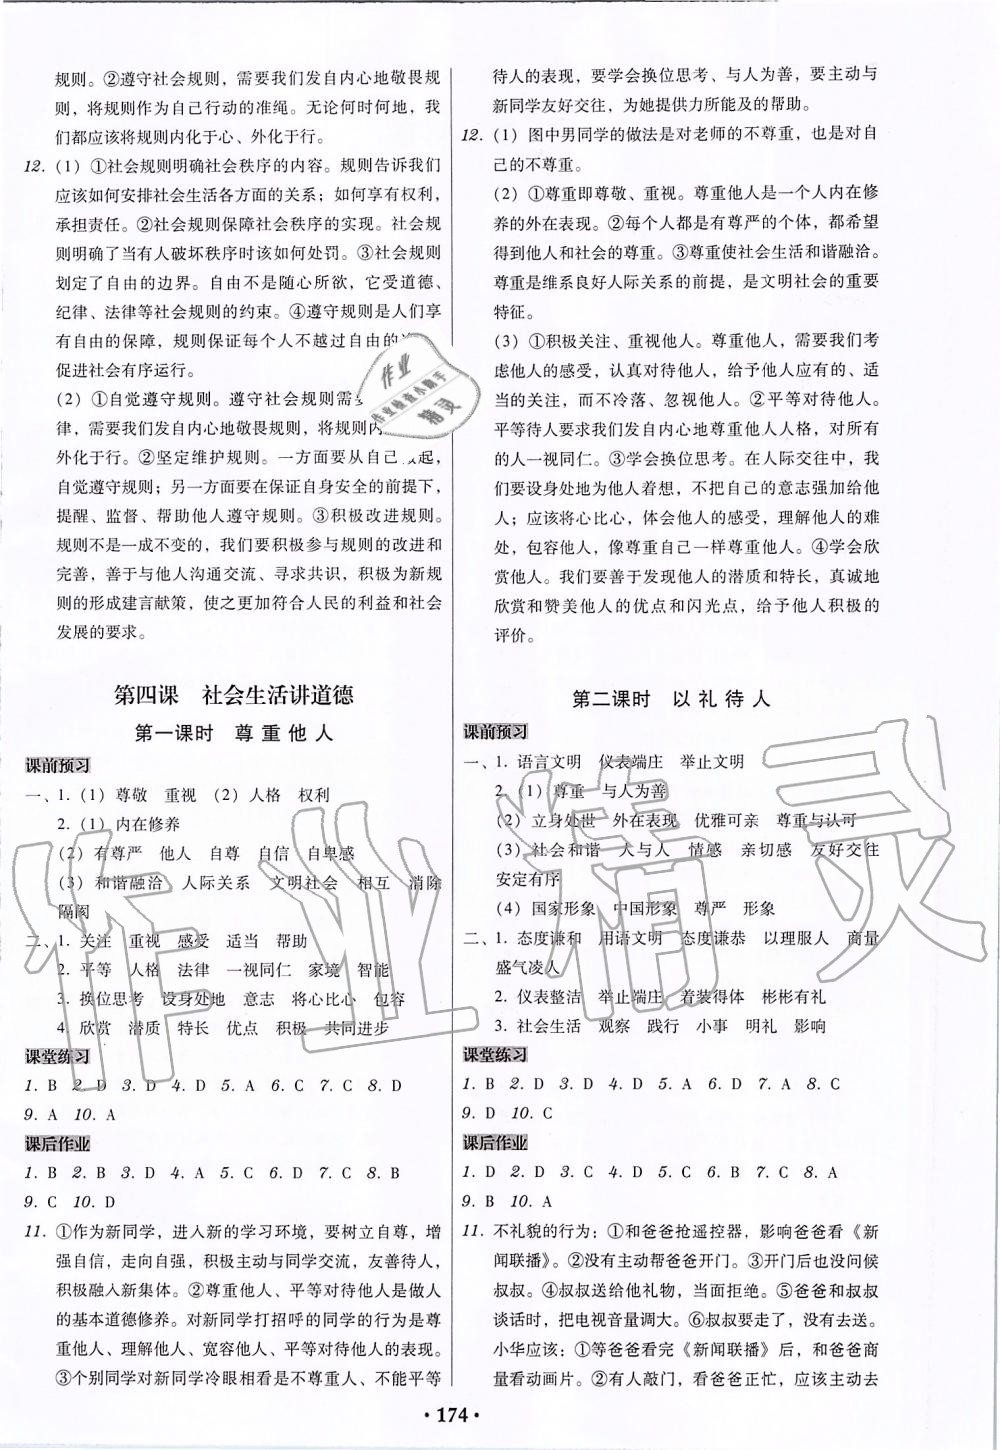 规则。②遵守社会规则，需要我们发自内心地敬畏规
则，将规则作为自己行动的准绳。无论何时何地，我
们都应该将规则内化于心、外化于行。
12. (1) ①社会规则明确社会秩序的内容。规则告诉我们
应该如何安排社会生活各方面的关系；如何享有权利，
承担责任。②社会规则保障社会秩序的实现。社会规
则明确了当有人破坏秩序时该如何处罚。③社会规则
划定了自由的边界。自由不是随心所欲，它受道德、
纪律、法律等社会规则的约束。④遵守规则是人们享
有自由的保障，规则保证每个人不越过自由的
促进社会有序运行。
(2) ①自觉遵守规则。遵守社会规则需
律，需要我们发自内心地敬畏规则，将规则内
外化于行。②坚定维护规则。一方面要从自己 起，
自觉遵守规则；另一方面在保证自身安全的前提下，
提醒、监督、帮助他人遵守规则。③积极改进规则。
规则不是一成不变的，我们要积极参与规则的改进和
完善，善于与他人沟通交流、寻求共识，积极为新规
则的形成建言献策，使之更加符合人民的利益和社会
发展的要求。
第四课 社会生活讲道德
第一课时 尊重他人
课前预习
一、1. (1) 尊敬 重视 (2) 人格 权利
2. (1) 内在修养
(2) 有尊严 他人 自尊 自信 自卑感
(3) 和谐融洽 人际关系 文明社会 相互 消除
隔阂
二、1. 关注 重视 感受 适当 帮助
2. 平等 人格 法律 一视同仁 家境 智能
3. 换位思考 设身处地 意志 将心比心 包容
4. 欣赏 潜质 特长 优点 积极 共同进步
课堂练习
1. B 2. D 3. D 4. D 5. A 6. C 7. C 8. D
9. A 10. A
课后作业
1. B 2. B 3. D 4. A 5. C 6. D 7. C 8. B
9. C 10. D
11. ①作为新同学，进入新的学习环境，要树立自尊，增
强自信，走向自强，积极主动与同学交流，友善待人，
积极融入新集体。②尊重他人、平等对待他人是做人
的基本道德修养。对新同学打招呼的同学的行为是尊
重他人、理解他人、宽容他人、平等对待他人的表现。
③个别同学对新同学冷眼相看是不尊重人、不能平等
待人的表现，要学会换位思考、与人为善，要主动与
新同学友好交往，为她提供力所能及的帮助。
12. (1) 图中男同学的做法是对老师的不尊重，也是对自
己的不尊重。
(2) ①尊重即尊敬、重视。尊重他人是一个人内在修
养的外在表现。②每个人都是有尊严的个体，都希望
得到他人和社会的尊重。③尊重使社会生活和谐融洽。
尊重是维系良好人际关系的前提，是文明社会的重要
特征。
(3) ①积极关注、重视他人。尊重他人，需要我们考
虑他人的感受，认真对待他人，给予他人应有的、适
当的关注，而不冷落、忽视他人。②平等对待他人。
平等待人要求我们发自内心地尊重他人人格，对所有
的人一视同仁。③学会换位思考。在人际交往中，我
们要设身处地为他人着想，不把自己的意志强加给他
人；应该将心比心，体会他人的感受，理解他人的难
处，包容他人，像尊重自己一样尊重他人。④学会欣
赏他人。我们要善于发现他人的潜质和特长，真诚地
欣赏和赞美他人的优点和闪光点，给予他人积极的
评价。
第二课时 以礼待人
课前预习
一、1. 语言文明 仪表端庄 举止文明
2. (1) 尊重 与人为善
(2) 立身处世 外在表现 优雅可亲 尊重与认可
(3) 社会和谐 人与人 情感 亲切感 友好交往
安定有序
(4) 国家形象 中国形象 尊严 形象
二、1. 态度谦和 用语文明 态度谦恭 以理服人 商量
盛气凌人
2. 仪表整洁 举止端庄 着装得体 彬彬有礼
3. 社会生活 观察 践行 小事 明礼 影响
课堂练习
1. B 2. D 3. D 4. D 5. A 6. D 7. A 8. C
9. D 10. C
课后作业
1. D 2. D 3. C 4. A 5. D 6. D 7. C 8. A
9. B 10. A
11. 不礼貌的行为：①和爸爸抢遥控器，影响爸爸看《新
闻联播》。②没有主动帮爸爸开门。③开门后也没问候
叔叔。④叔叔送给他礼物，当面拒绝。⑤爸爸和叔叔
谈话时，把电视音量调大。⑥叔叔要走时，没有去送。
小华应该：①等爸爸看完《新闻联播》后，和爸爸商
量看动画片。②有人敲门，看爸爸正忙，应该主动去
· 174 ·
作业
作业检查小助手
精灵
作业精灵